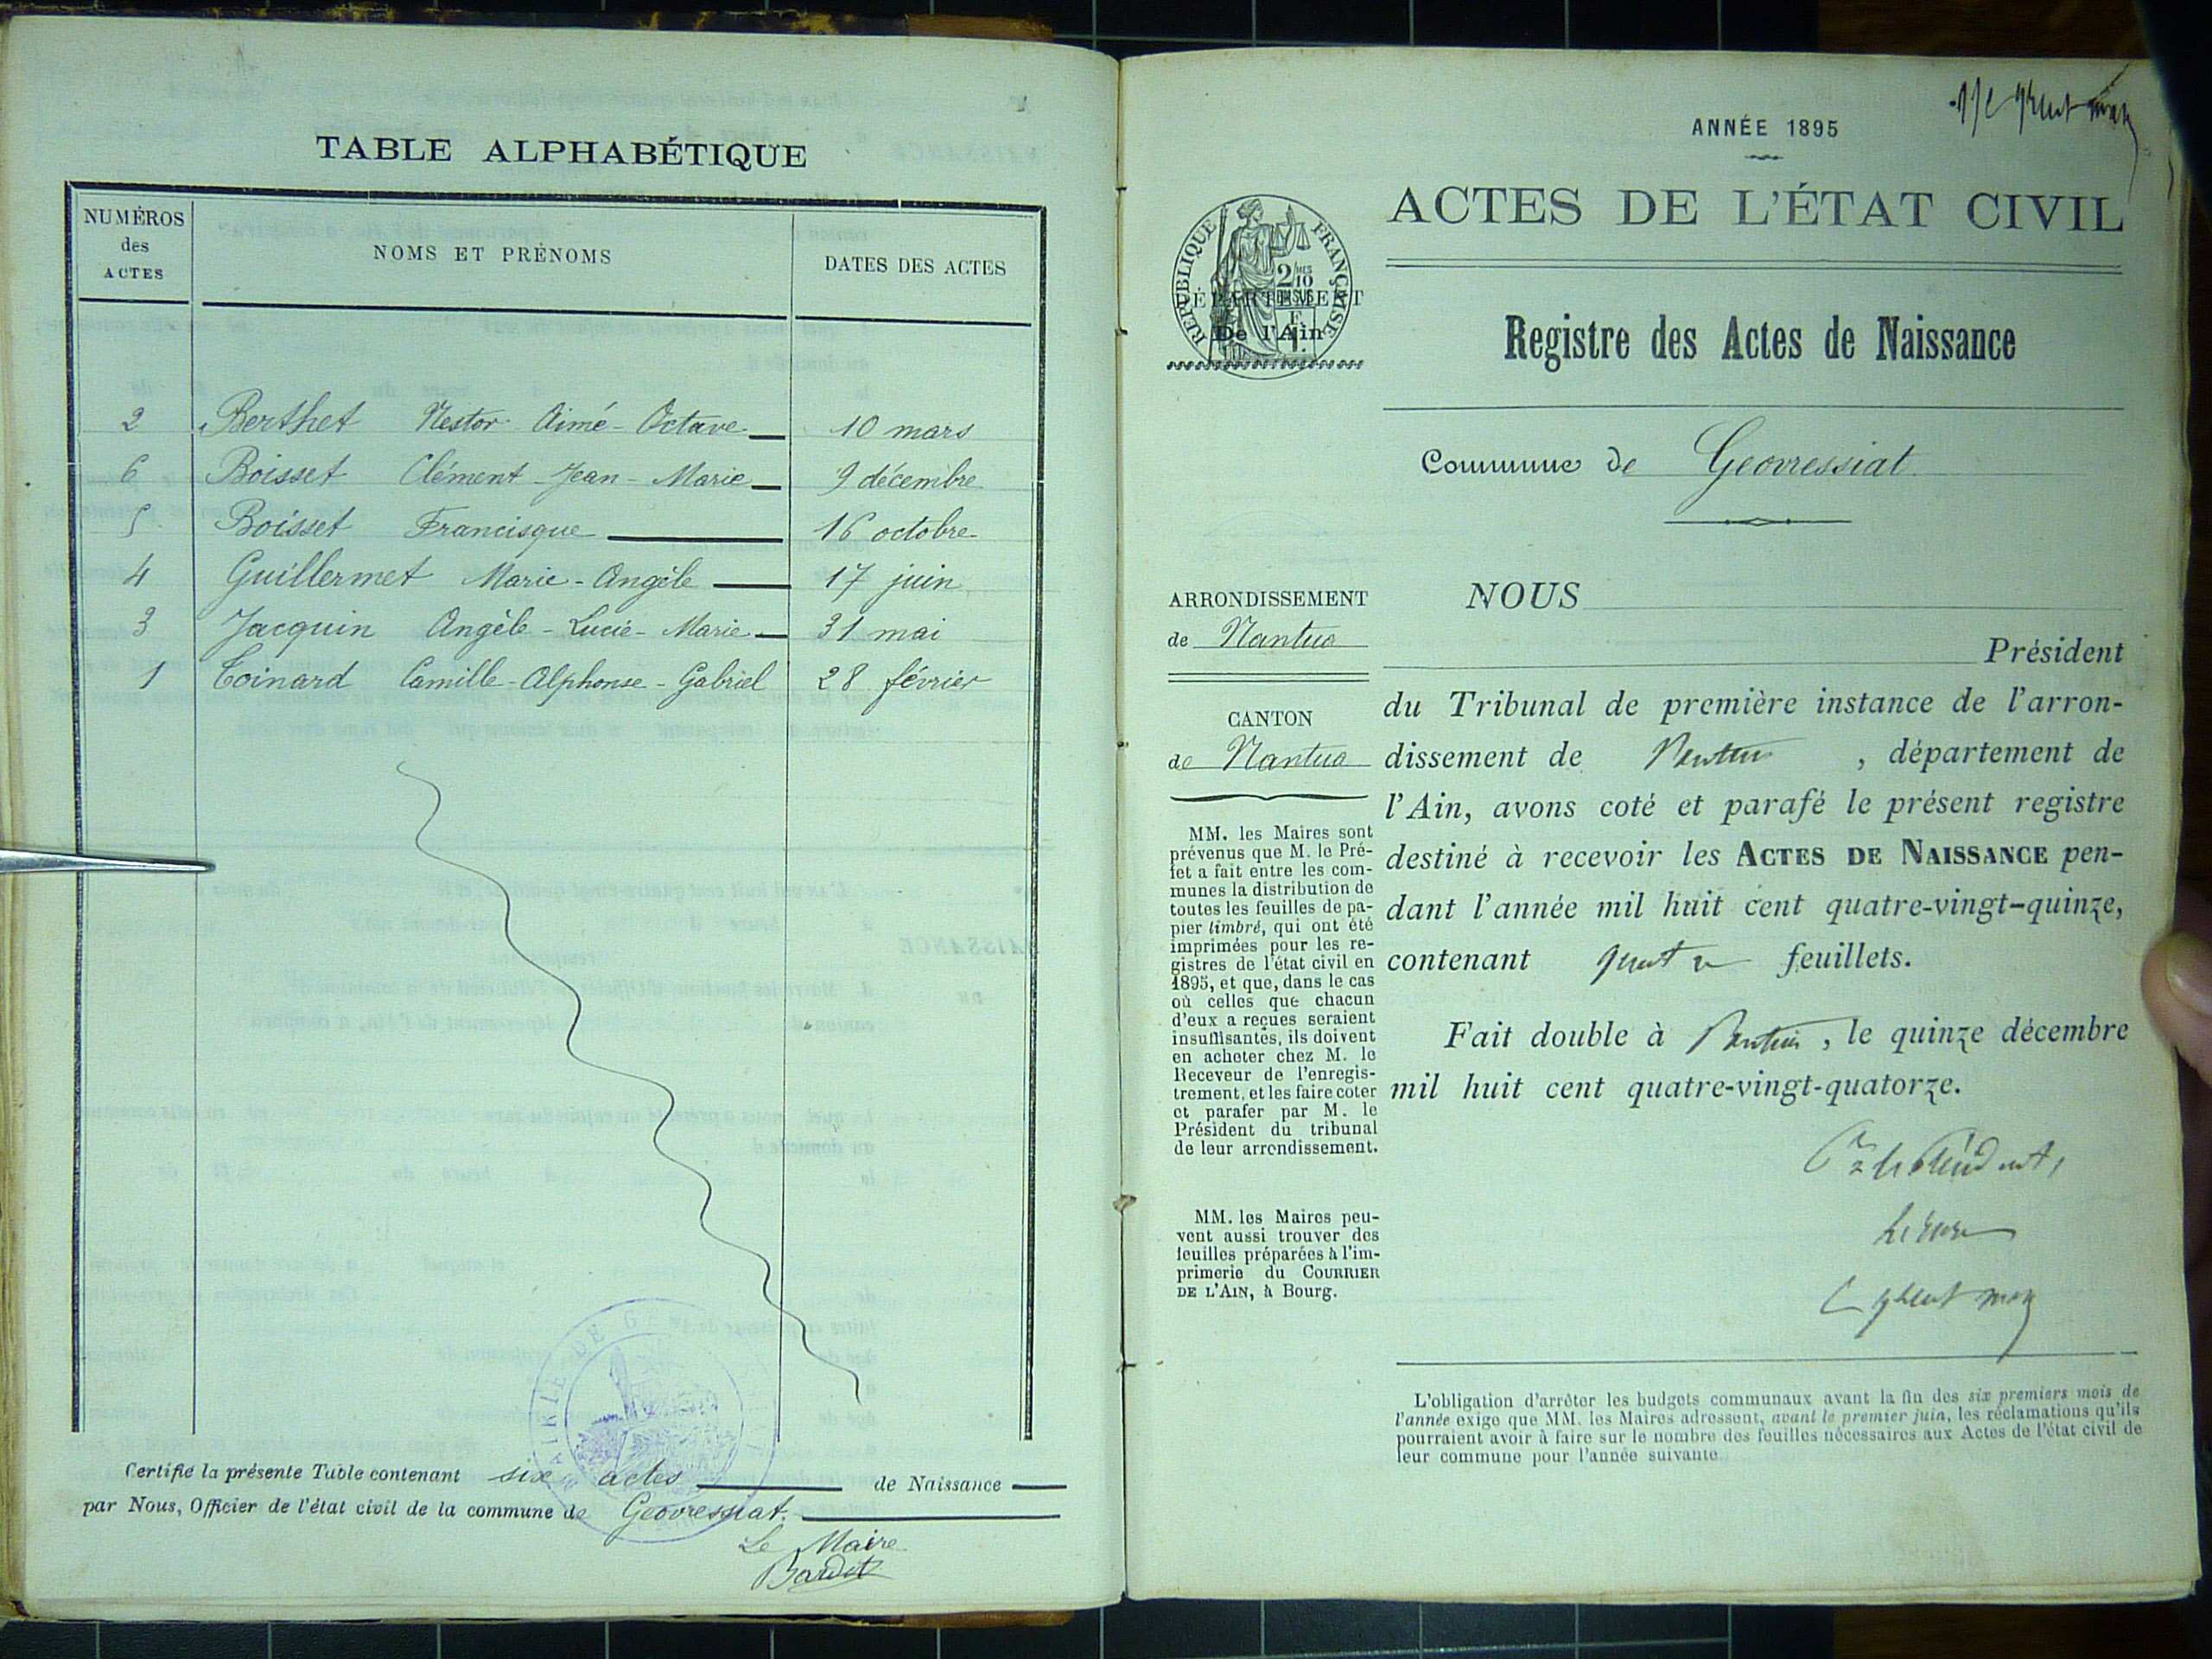 TABLE ALPHABÉTIQUE
NUMÉROS
des
ACTES
NOMS ET PRÉNOMS
DATES DES ACTES
2 Berthet Nestor Aimé-Octave 10 mars
6 Boisset Clément-Jean-Marie 9 décembre
5 Boisset Francisque 16 octobre
4 Guillermet Marie-Angèle 17 juin
3 Jacquin Angèle-Lucie-Marie 31 mai
1 Coinard Camille-Alphonse-Gabriel 28 février
MAIRIE DE G
Certifié la présente Table contenant six actes de Naissance
par Nous, Officier de l'état civil de la commune de Geovressiat.
Le Maire
ANNÉE 1895
ACTES DE L'ÉTAT CIVIL
RÉPUBLIQUE FRANÇAISE
DÉPARTEMENT
De l'Ain
Registre des Actes de Naissance
Commune de Geovressiat
ARRONDISSEMENT
de Nantua
CANTON
de Nantua
MM. les Maires sont
prévenus que M. le Pré-
fet a fait entre les com-
munes la distribution de
toutes les feuilles de pa-
pier timbré, qui ont été
imprimées pour les re-
gistres de l'état civil en
1895, et que, dans le cas
où celles que chacun
d'eux a reçues seraient
insuffisantes, ils doivent
en acheter chez M. le
Receveur de l'enregis-
trement, et les faire coter
et parafer par M. le
Président du tribunal
de leur arrondissement.
MM. les Maires peu-
vent aussi trouver des
feuilles préparées à l'im-
primerie du COURRIER
DE L'AIN, à Bourg.
NOUS
Président
du Tribunal de première instance de l'arron-
dissement de Nantua, département de
l'Ain, avons coté et parafé le présent registre
destiné à recevoir les ACTES DE NAISSANCE pen-
dant l'année mil huit cent quatre-vingt-quinze,
contenant quatre feuillets.
Fait double à Nantua, le quinze décembre
mil huit cent quatre-vingt-quatorze.
L'obligation d'arrêter les budgets communaux avant la fin des six premiers mois de
l'année exige que MM. les Maires adressent, avant le premier juin, les réclamations qu'ils
pourraient avoir à faire sur le nombre des feuilles nécessaires aux Actes de l'état civil de
leur commune pour l'année suivante.